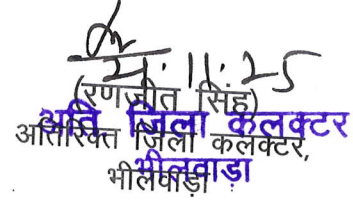 11.25
(रणजीत सिंह)
अति. जिला कलक्टर
अतिरिक्त जिला कलक्टर,
भीलवाड़ा
भीलवाड़ा